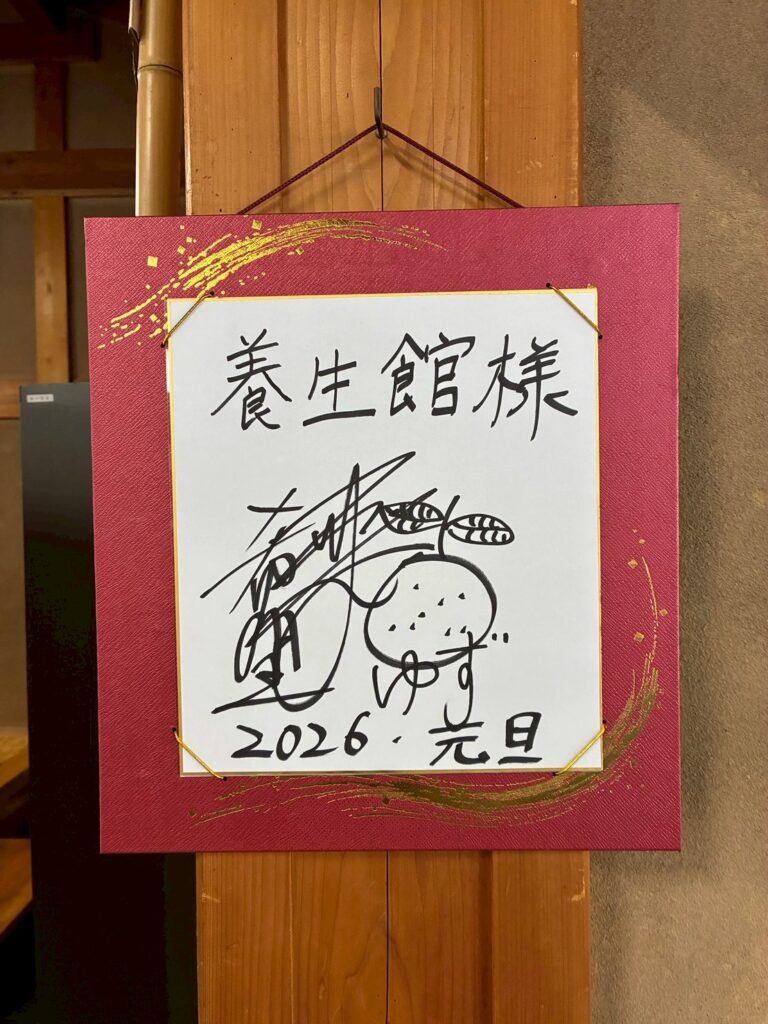 養生館様
ゆず
2026.元旦